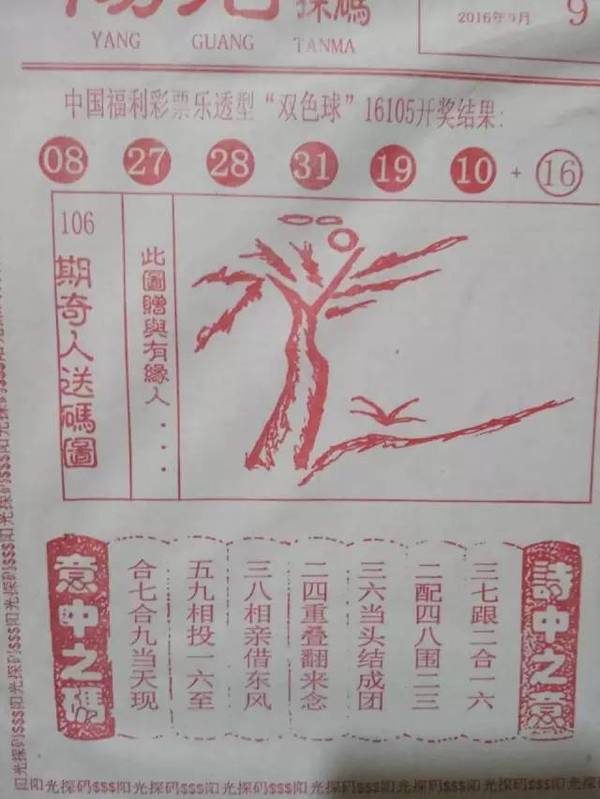 探碼
YANG GUANG TANMA
2016年9月
9
中国福利彩票乐透型“双色球”16105开奖结果:
08 27 28 31 19 10 + 16
106
期奇人送碼圖
此圖贈與有緣人...
詩中之意
三七跟二合一六
二配四八围二三
三六当头结成团
二四重叠翻来念
三八相亲借东风
五九相投一六至
合七合九当天现
意中之碼
阳光探码$$$阳光探码$$$阳光探码$$$阳光探码$$$阳光探码
阳光探码$$$阳光探码$$$阳光探码$$$阳光探码$$$阳光探码$$$